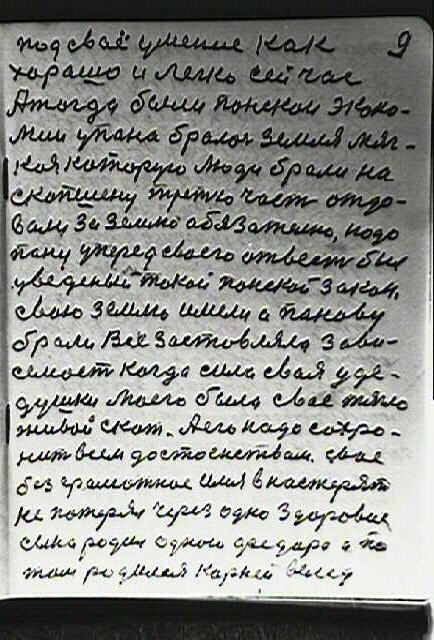 под своё умение как 9
харашо и легко сей час
Атогда были понском эконо-
мии упана бралог земля мяг-
кая которую люди брали на
скопшену третю част отдо-
вали за землю обязателно, надо
пану уперед своего отвести был
уведеный такой понской закон,
свою землю имели а панову
брали Всё заставляла зави-
семост когда сила свая у де-
душки моего была своё тягло
живой скот. Аего надо сохро-
нит всем достоенствам свае
без грамотное имя в настерят
не потеряв через одно здоровие
сына родил одного федара а по
том родился Карней